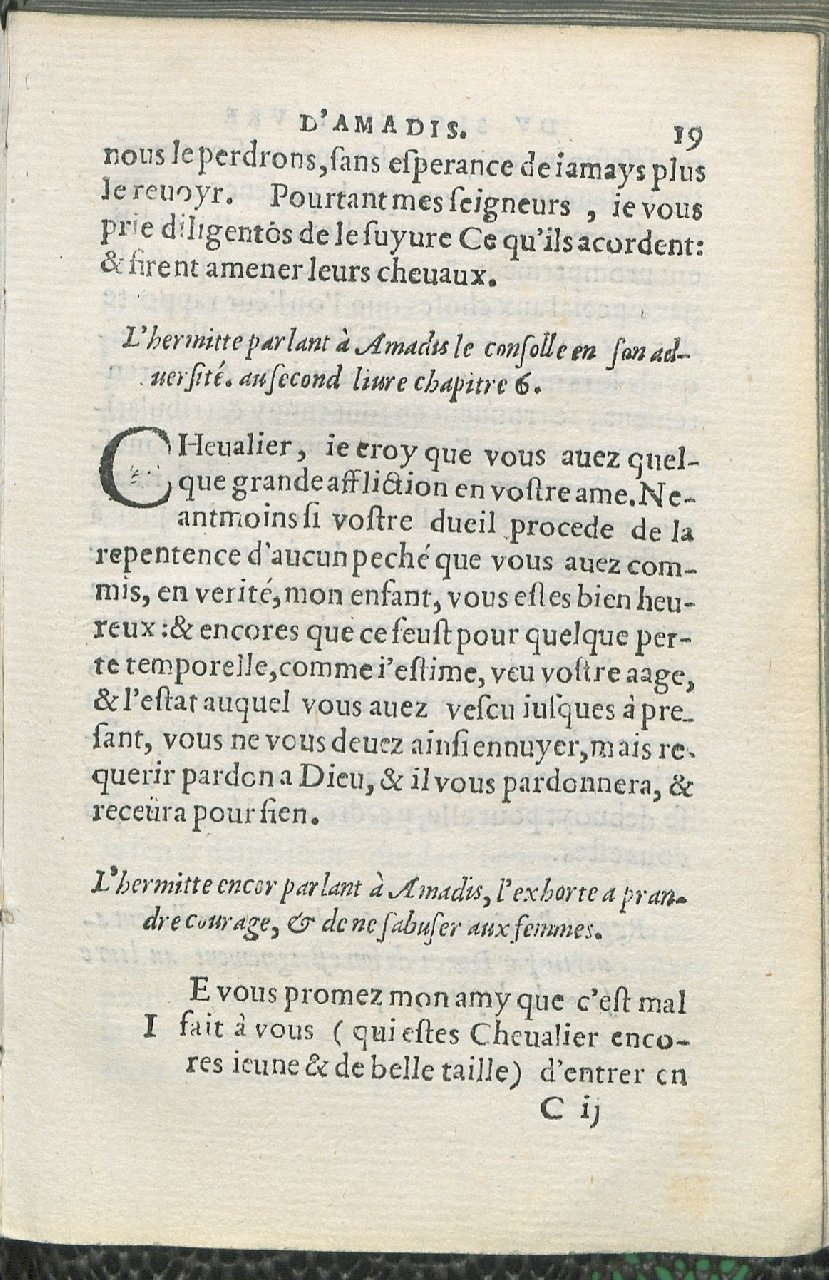 D'AMADIS. 19
nous le perdrons, sans esperance de iamays plus
le reuoyr. Pourtant mes seigneurs , ie vous
prie diligentós de le suyure Ce qu'ils acordent:
& firent amener leurs cheuaux.
L'hermitte parlant à Amadis le consolle en son ad-
uersité. au second liure chapitre 6.
CHeualier, ie croy que vous auez quel-
que grande affliction en vostre ame. Ne-
antmoins si vostre dueil procede de la
repentence d'aucun peché que vous auez com-
mis, en verité, mon enfant, vous estes bien heu-
reux : & encores que ce feust pour quelque per-
te temporelle, comme i'estime, veu vostre aage,
& l'estat auquel vous auez vescu iusques à pre-
sant, vous ne vous deuez ainsi ennuyer, mais re-
querir pardon a Dieu, & il vous pardonnera, &
receura pour sien.
L'hermitte encor parlant à Amadis, l'exhorte a pran-
dre courage, & de ne sabuser aux femmes.
E vous promez mon amy que c'est mal
I fait à vous ( qui estes Cheualier enco-
res ieune & de belle taille) d'entrer en
C ij